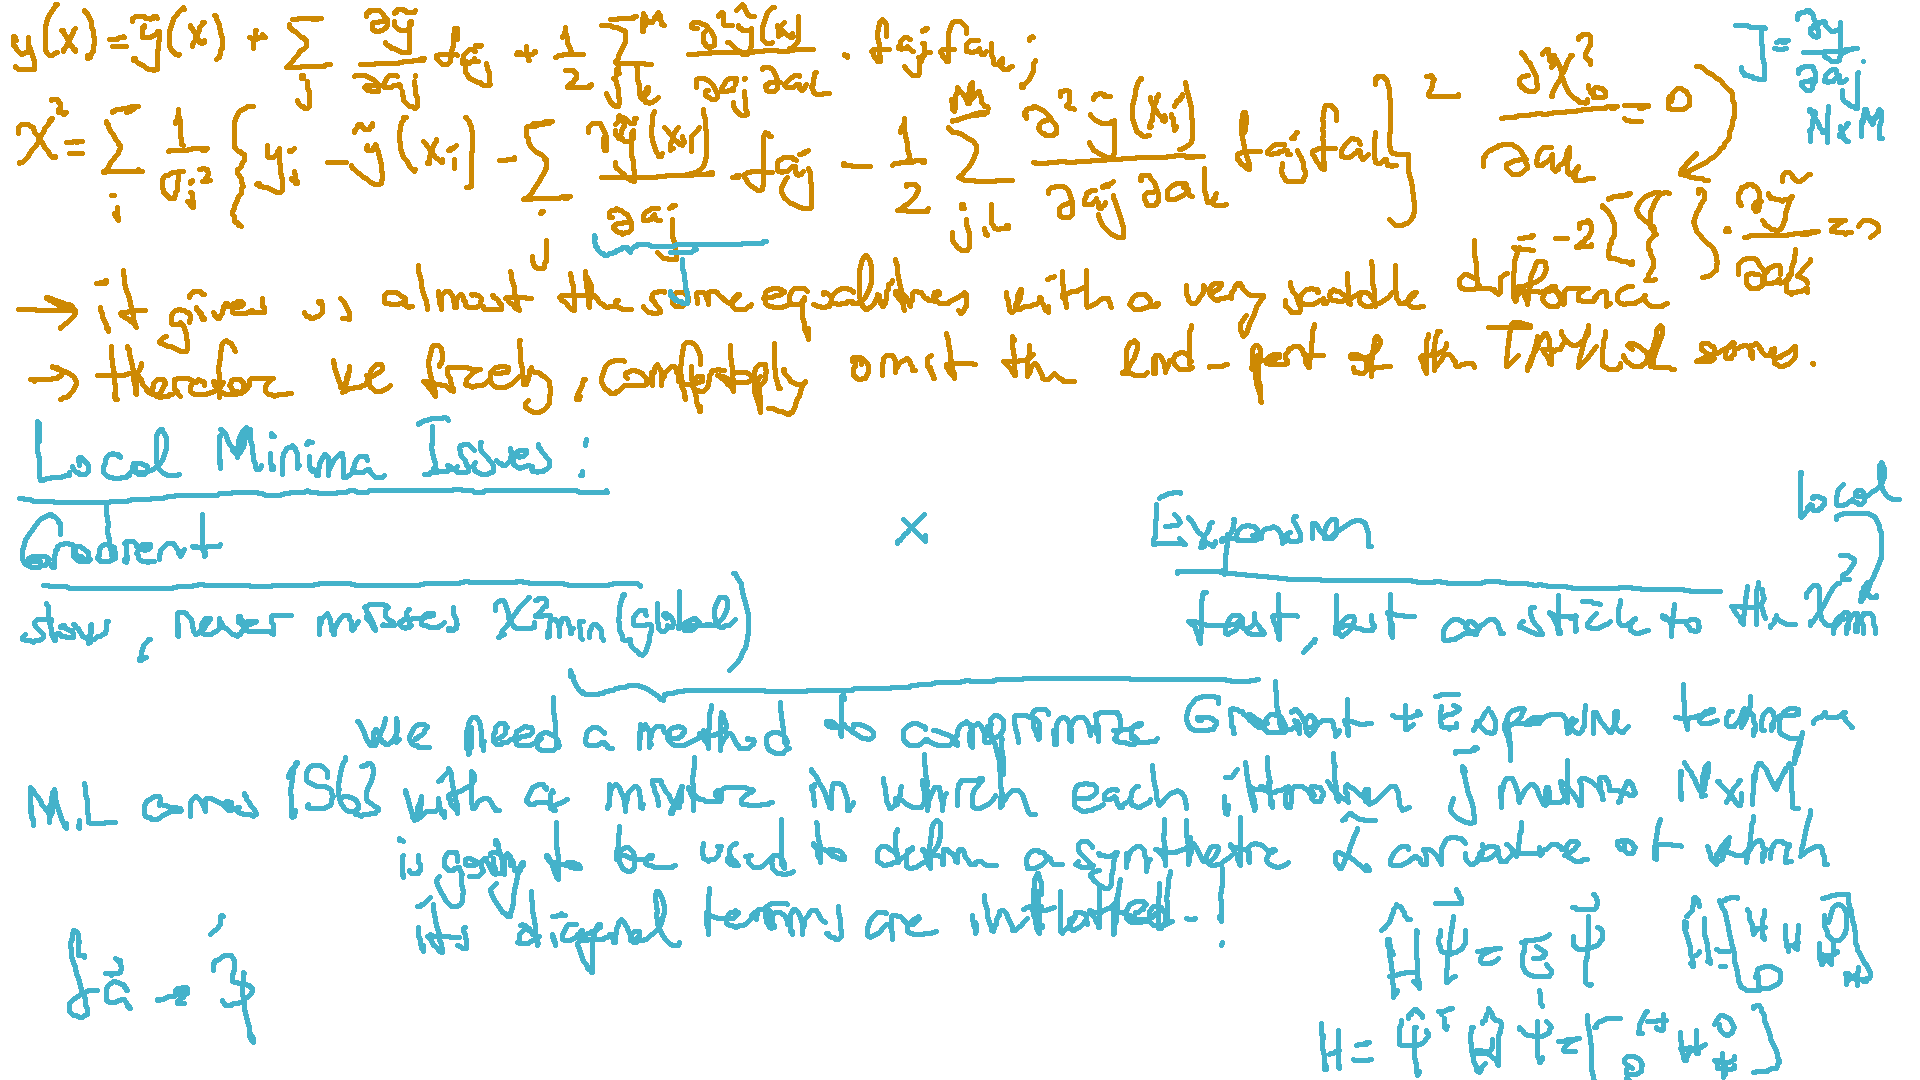 y(x) = ỹ(x) + Σ_j ∂ỹ/∂aj δaj + 1/2 Σ_jk^M ∂²ỹ(xi)/∂aj ∂ak · δaj δak ;
J = ∂y/∂aj
N×M
χ² = Σ_i 1/σi² { yi - ỹ(xi) - Σ_j ∂ỹ(xi)/∂aj · δaj - 1/2 Σ_j,k^M ∂²ỹ(xi)/∂aj ∂ak δaj δak }² ∂χ²/∂ak = 0
= -2 Σ { } · ∂ỹ/∂ak = 0
→ it gives us almost the same equalities with a very saddle difference
→ therefore we freely, comfortably omit the end-part of the TAYLOR series.
Local Minima Issues :
Gradient × Expansion
local
slow, never misses χ²min (global) fast, but can stick to the χ²min
we need a method to compromize Gradient + Expansion
M.L comes 1963 with a mixture in which each J matrix N×M
is going to be used to define a synthetic α̃ curvature of which
its diagonal terms are !
δa⃗ →
Ĥ ψ⃗ = E ψ⃗
H = ψ̂ᵀ Ĥ ψ =